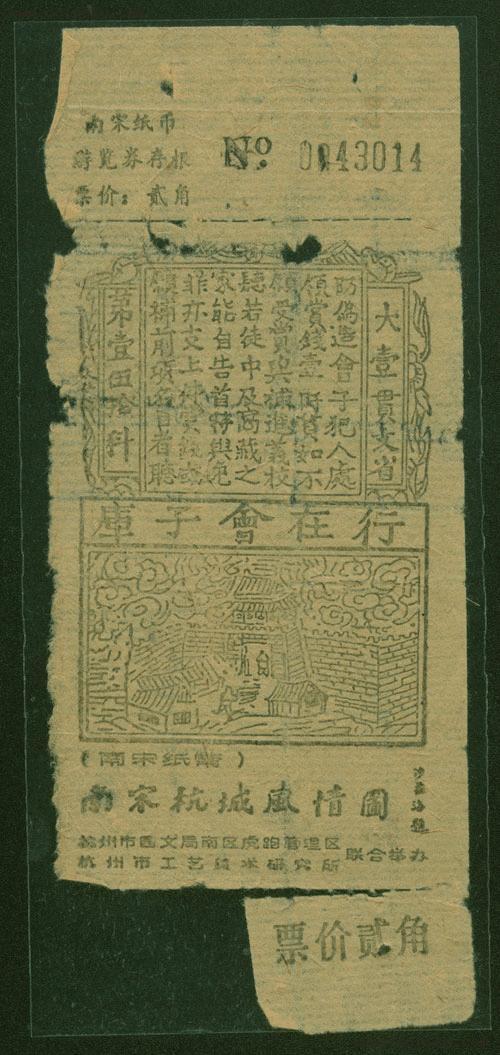 南宋纸币
游览券存根
票价：贰角
No 0043014
大壹贯文省
第壹伍拾料
勑偽造會子犯人處
領賞錢壹阡貫如不
願受賞與補進義校
尉若徒中及窩藏之
家能自告首特與免
罪亦支上件賞錢或
願補前項名目者聽
行在會子庫
（南宋纸币）
南宋杭城风情圖
杭州市园文局南区虎跑管理区
杭州市工艺美术研究所
联合举办
票价贰角